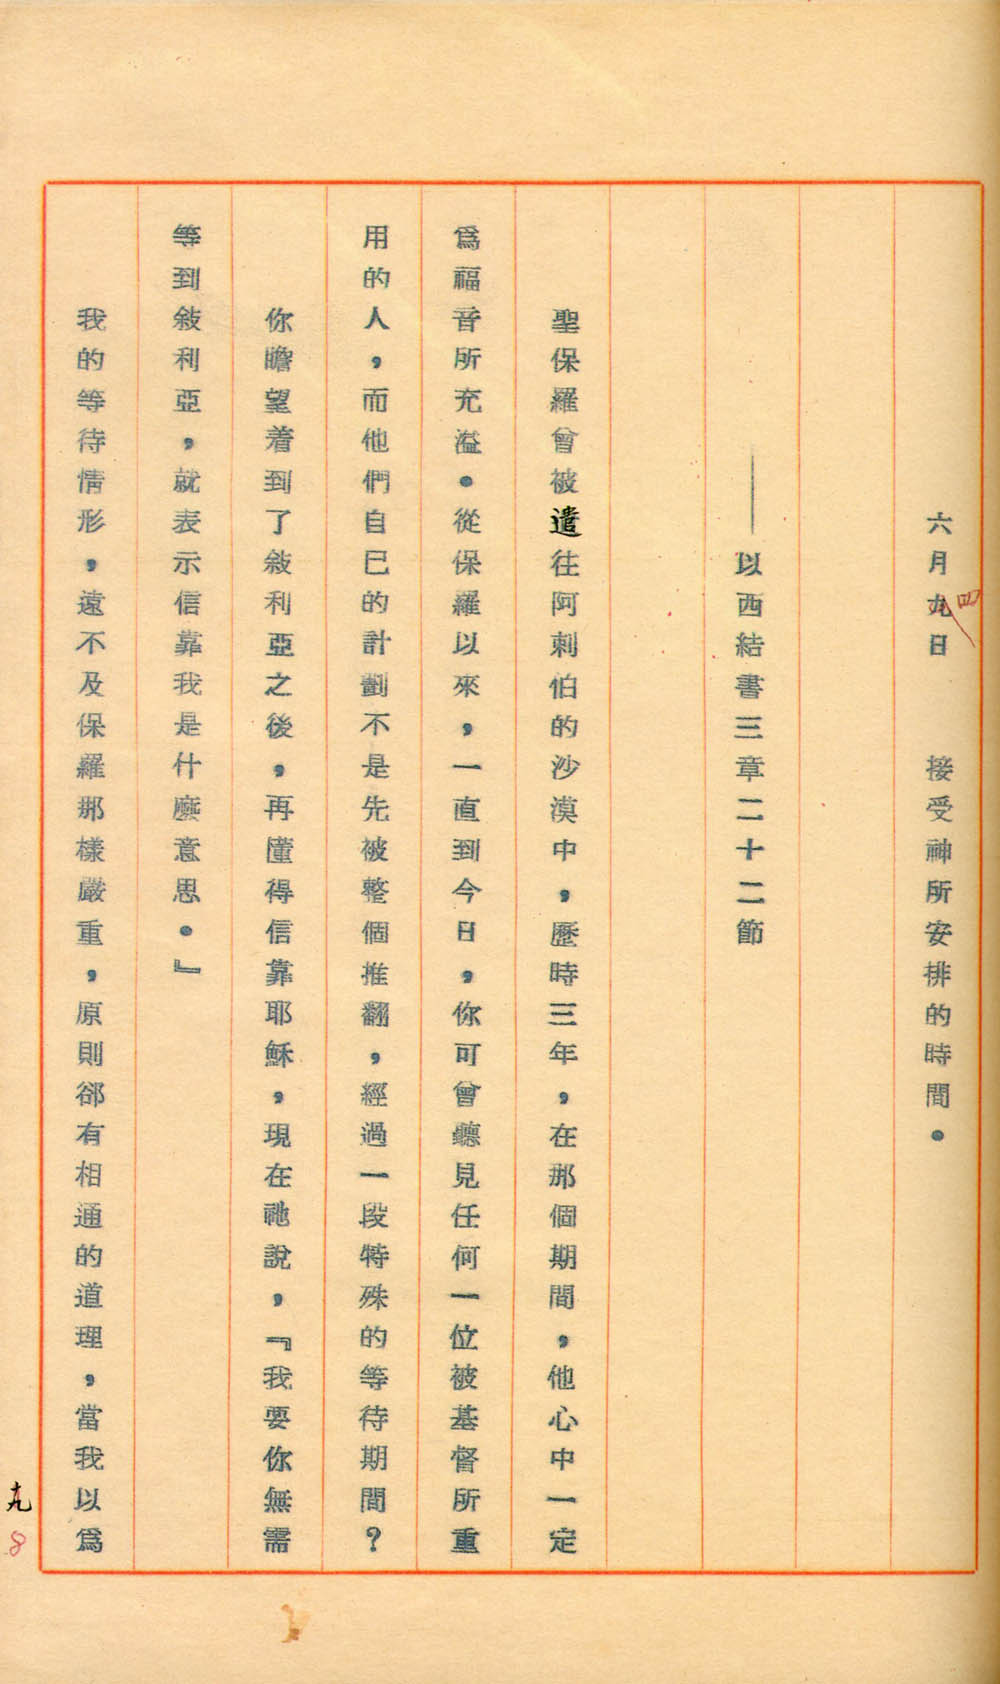 六月九日　　接受神所安排的時間。
四
——以西結書三章二十二節
聖保羅曾被遣往阿剌伯的沙漠中，歷時三年，在那個期間，他心中一定
爲福音所充溢。從保羅以來，一直到今日，你可曾聽見任何一位被基督所重
用的人，而他們自己的計劃不是先被整個推翻，經過一段特殊的等待期間？
你瞻望着到了敍利亞之後，再懂得信靠耶穌，現在祂說，『我要你無需
等到敍利亞，就表示信靠我是什麼意思。』
我的等待情形，遠不及保羅那樣嚴重，原則郤有相通的道理，當我以爲
九
8